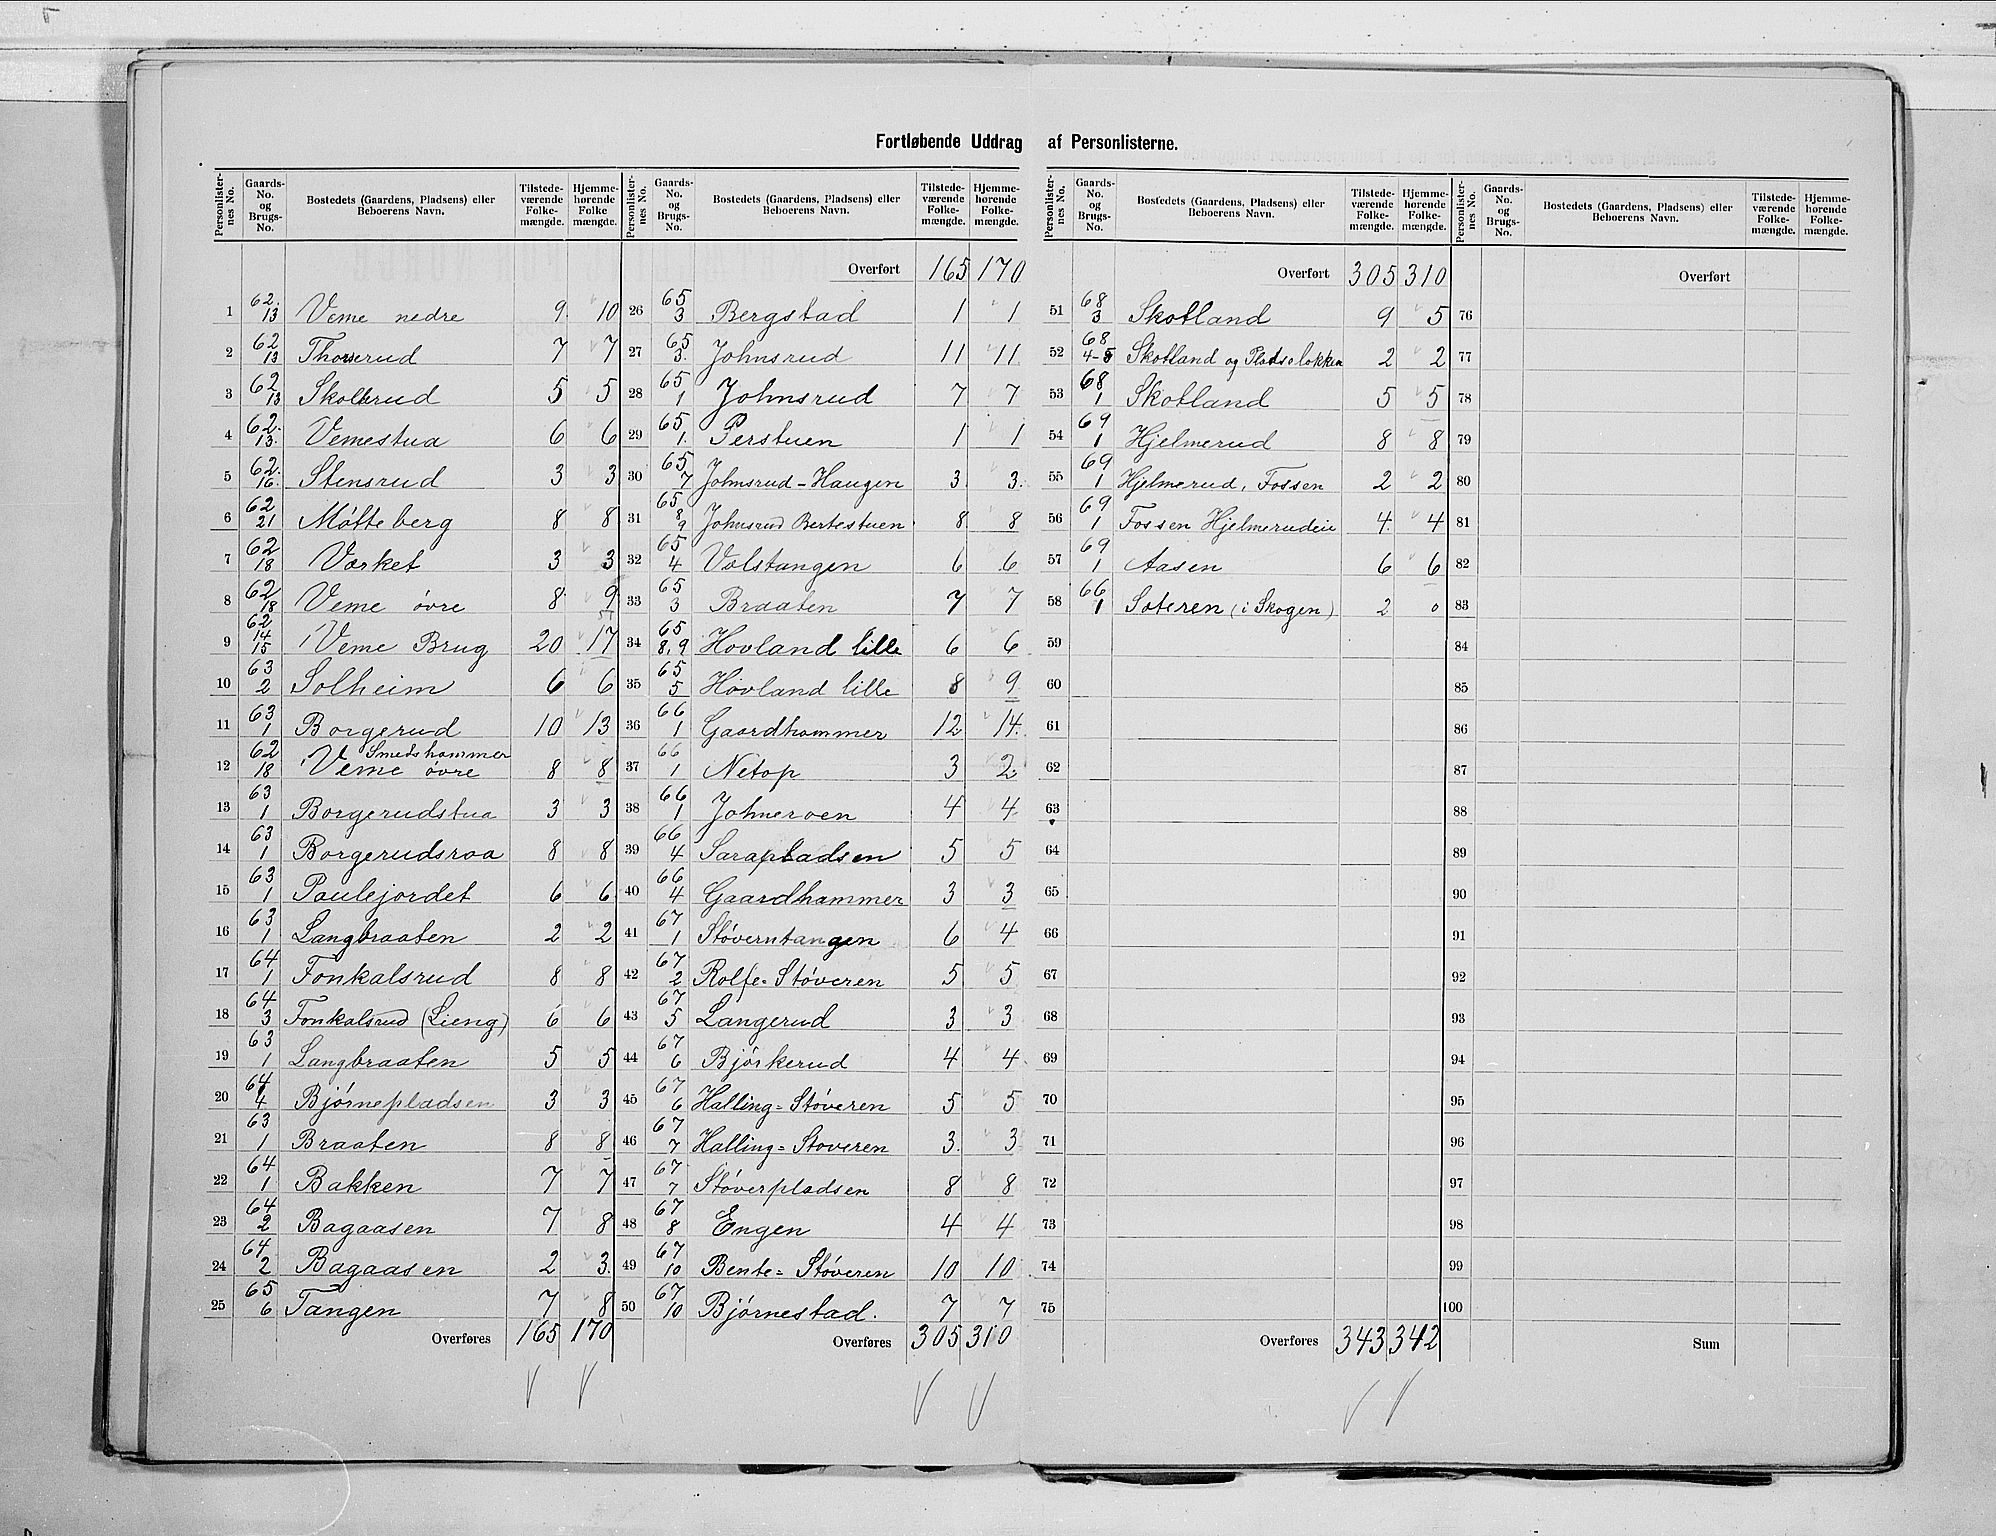 Fortløbende Uddrag af Personlisterne.
Personlisternes No. | Gaards-No. og Brugs-No. | Bostedets (Gaardens, Pladsens) eller Beboerens Navn. | Tilstedeværende Folkemængde. | Hjemmehørende Folkemængde.
1 | 62 13 | Veme nedre | 9 | 10
2 | 62 13 | Thorserud | 7 | 7
3 | 62 13 | Skollerud | 5 | 5
4 | 62 13 | Vemestua | 6 | 6
5 | 62 16 | Stensrud | 3 | 3
6 | 62 21 | Møtteberg | 8 | 8
7 | 62 18 | Værket | 3 | 3
8 | 62 18 | Veme øvre | 8 | 9
9 | 62 14 15 | Veme Brug | 20 | 17
10 | 63 2 | Solheim | 6 | 6
11 | 63 1 | Borgerud | 10 | 13
12 | 62 18 | Veme øvre Smedshammer | 8 | 8
13 | 63 1 | Borgerudstua | 3 | 3
14 | 63 1 | Borgerudsroa | 8 | 8
15 | 63 1 | Paulejordet | 6 | 6
16 | 63 1 | Langbraaten | 2 | 2
17 | 64 1 | Fonkalsrud | 8 | 8
18 | 64 3 | Fonkalsrud (Lieng) | 6 | 6
19 | 63 1 | Langbraaten | 5 | 5
20 | 64 4 | Bjørnepladsen | 3 | 3
21 | 63 1 | Braaten | 8 | 8
22 | 64 1 | Bakken | 7 | 7
23 | 64 2 | Bagaasen | 7 | 8
24 | 64 2 | Bagaasen | 2 | 3
25 | 65 6 | Tangen | 7 | 8
Overføres | 165 | 170
Personlisternes No. | Gaards-No. og Brugs-No. | Bostedets (Gaardens, Pladsens) eller Beboerens Navn. | Tilstedeværende Folkemængde. | Hjemmehørende Folkemængde.
Overført | 165 | 170
26 | 65 3 | Bergstad | 1 | 1
27 | 65 3 | Johnsrud | 11 | 11
28 | 65 1 | Johnsrud | 7 | 7
29 | 65 1 | Perstuen | 1 | 1
30 | 65 7 | Johnsrud-Haugen | 3 | 3
31 | 65 8 9 | Johnsrud Bertestuen | 8 | 8
32 | 65 4 | Volstangen | 6 | 6
33 | 65 3 | Braaten | 7 | 7
34 | 65 8,9 | Hovland lille | 6 | 6
35 | 65 5 | Hovland lille | 8 | 9
36 | 66 1 | Gaardhammer | 12 | 14
37 | 66 1 | Netop | 3 | 2
38 | 66 1 | Johneroen | 4 | 4
39 | 66 4 | Sarapladsen | 5 | 5
40 | 66 4 | Gaardhammer | 3 | 3
41 | 67 1 | Støverntangen | 6 | 4
42 | 67 2 | Rolfe-Støveren | 5 | 5
43 | 67 5 | Langerud | 3 | 3
44 | 67 6 | Bjørkerud | 4 | 4
45 | 67 6 | Halling-Støveren | 5 | 5
46 | 67 7 | Halling-Støveren | 3 | 3
47 | 67 7 | Støverpladsen | 8 | 8
48 | 67 8 | Engen | 4 | 4
49 | 67 10 | Bente-Støveren | 10 | 10
50 | 67 10 | Bjørnestad. | 7 | 7
Overføres | 305 | 310
Personlisternes No. | Gaards-No. og Brugs-No. | Bostedets (Gaardens, Pladsens) eller Beboerens Navn. | Tilstedeværende Folkemængde. | Hjemmehørende Folkemængde.
Overført | 305 | 310
51 | 68 3 | Skotland | 9 | 5
52 | 68 4-5 | Skotland og Pladseløkken | 2 | 2
53 | 68 1 | Skotland | 5 | 5
54 | 69 1 | Hjelmerud | 8 | 8
55 | 69 1 | Hjelmerud, Fossen | 2 | 2
56 | 69 1 | Fossen Hjelmerudeie | 4 | 4
57 | 69 1 | Aasen | 6 | 6
58 | 66 1 | Soteren (i Skogen) | 2 | 0
59
60
61
62
63
64
65
66
67
68
69
70
71
72
73
74
75
Overføres | 343 | 342
Personlisternes No. | Gaards-No. og Brugs-No. | Bostedets (Gaardens, Pladsens) eller Beboerens Navn. | Tilstedeværende Folkemængde. | Hjemmehørende Folkemængde.
Overført
76
77
78
79
80
81
82
83
84
85
86
87
88
89
90
91
92
93
94
95
96
97
98
99
100
Sum